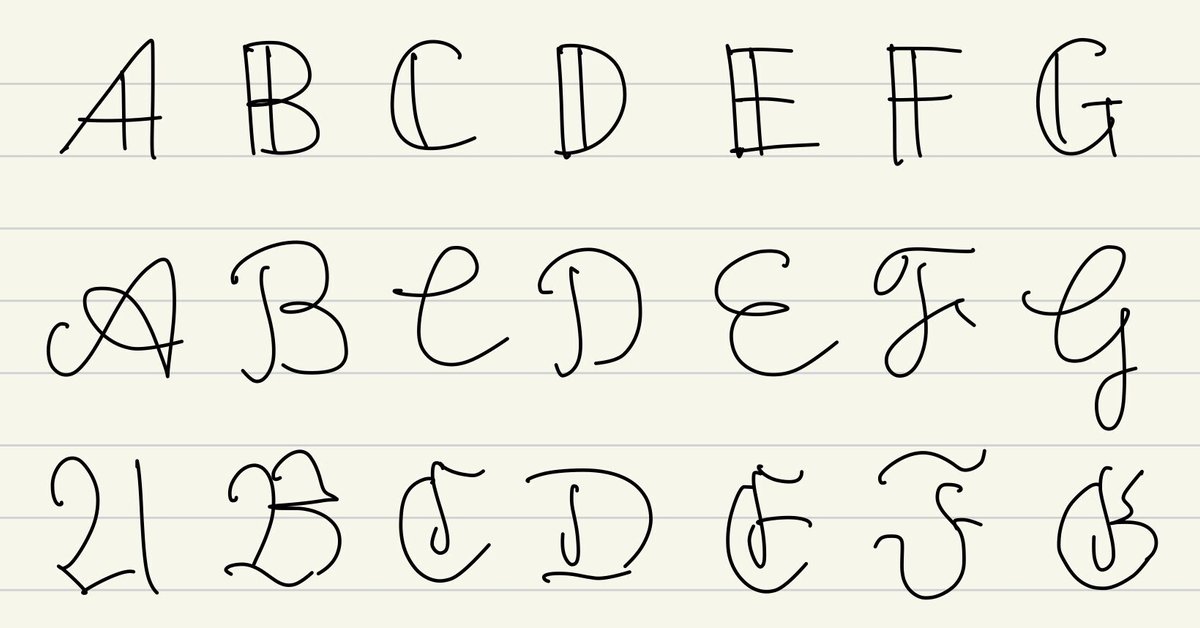 A B C D E F G
A B C D E F G
A B C D E F G